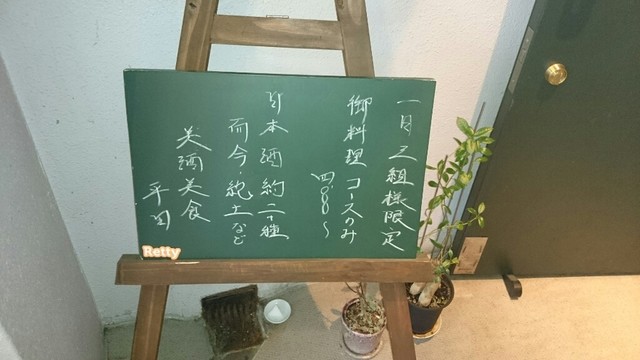 一日三組様限定
御料理コースのみ
四.000〜
日本酒約二十種
而今・純土など
美酒美食
平田
Retty